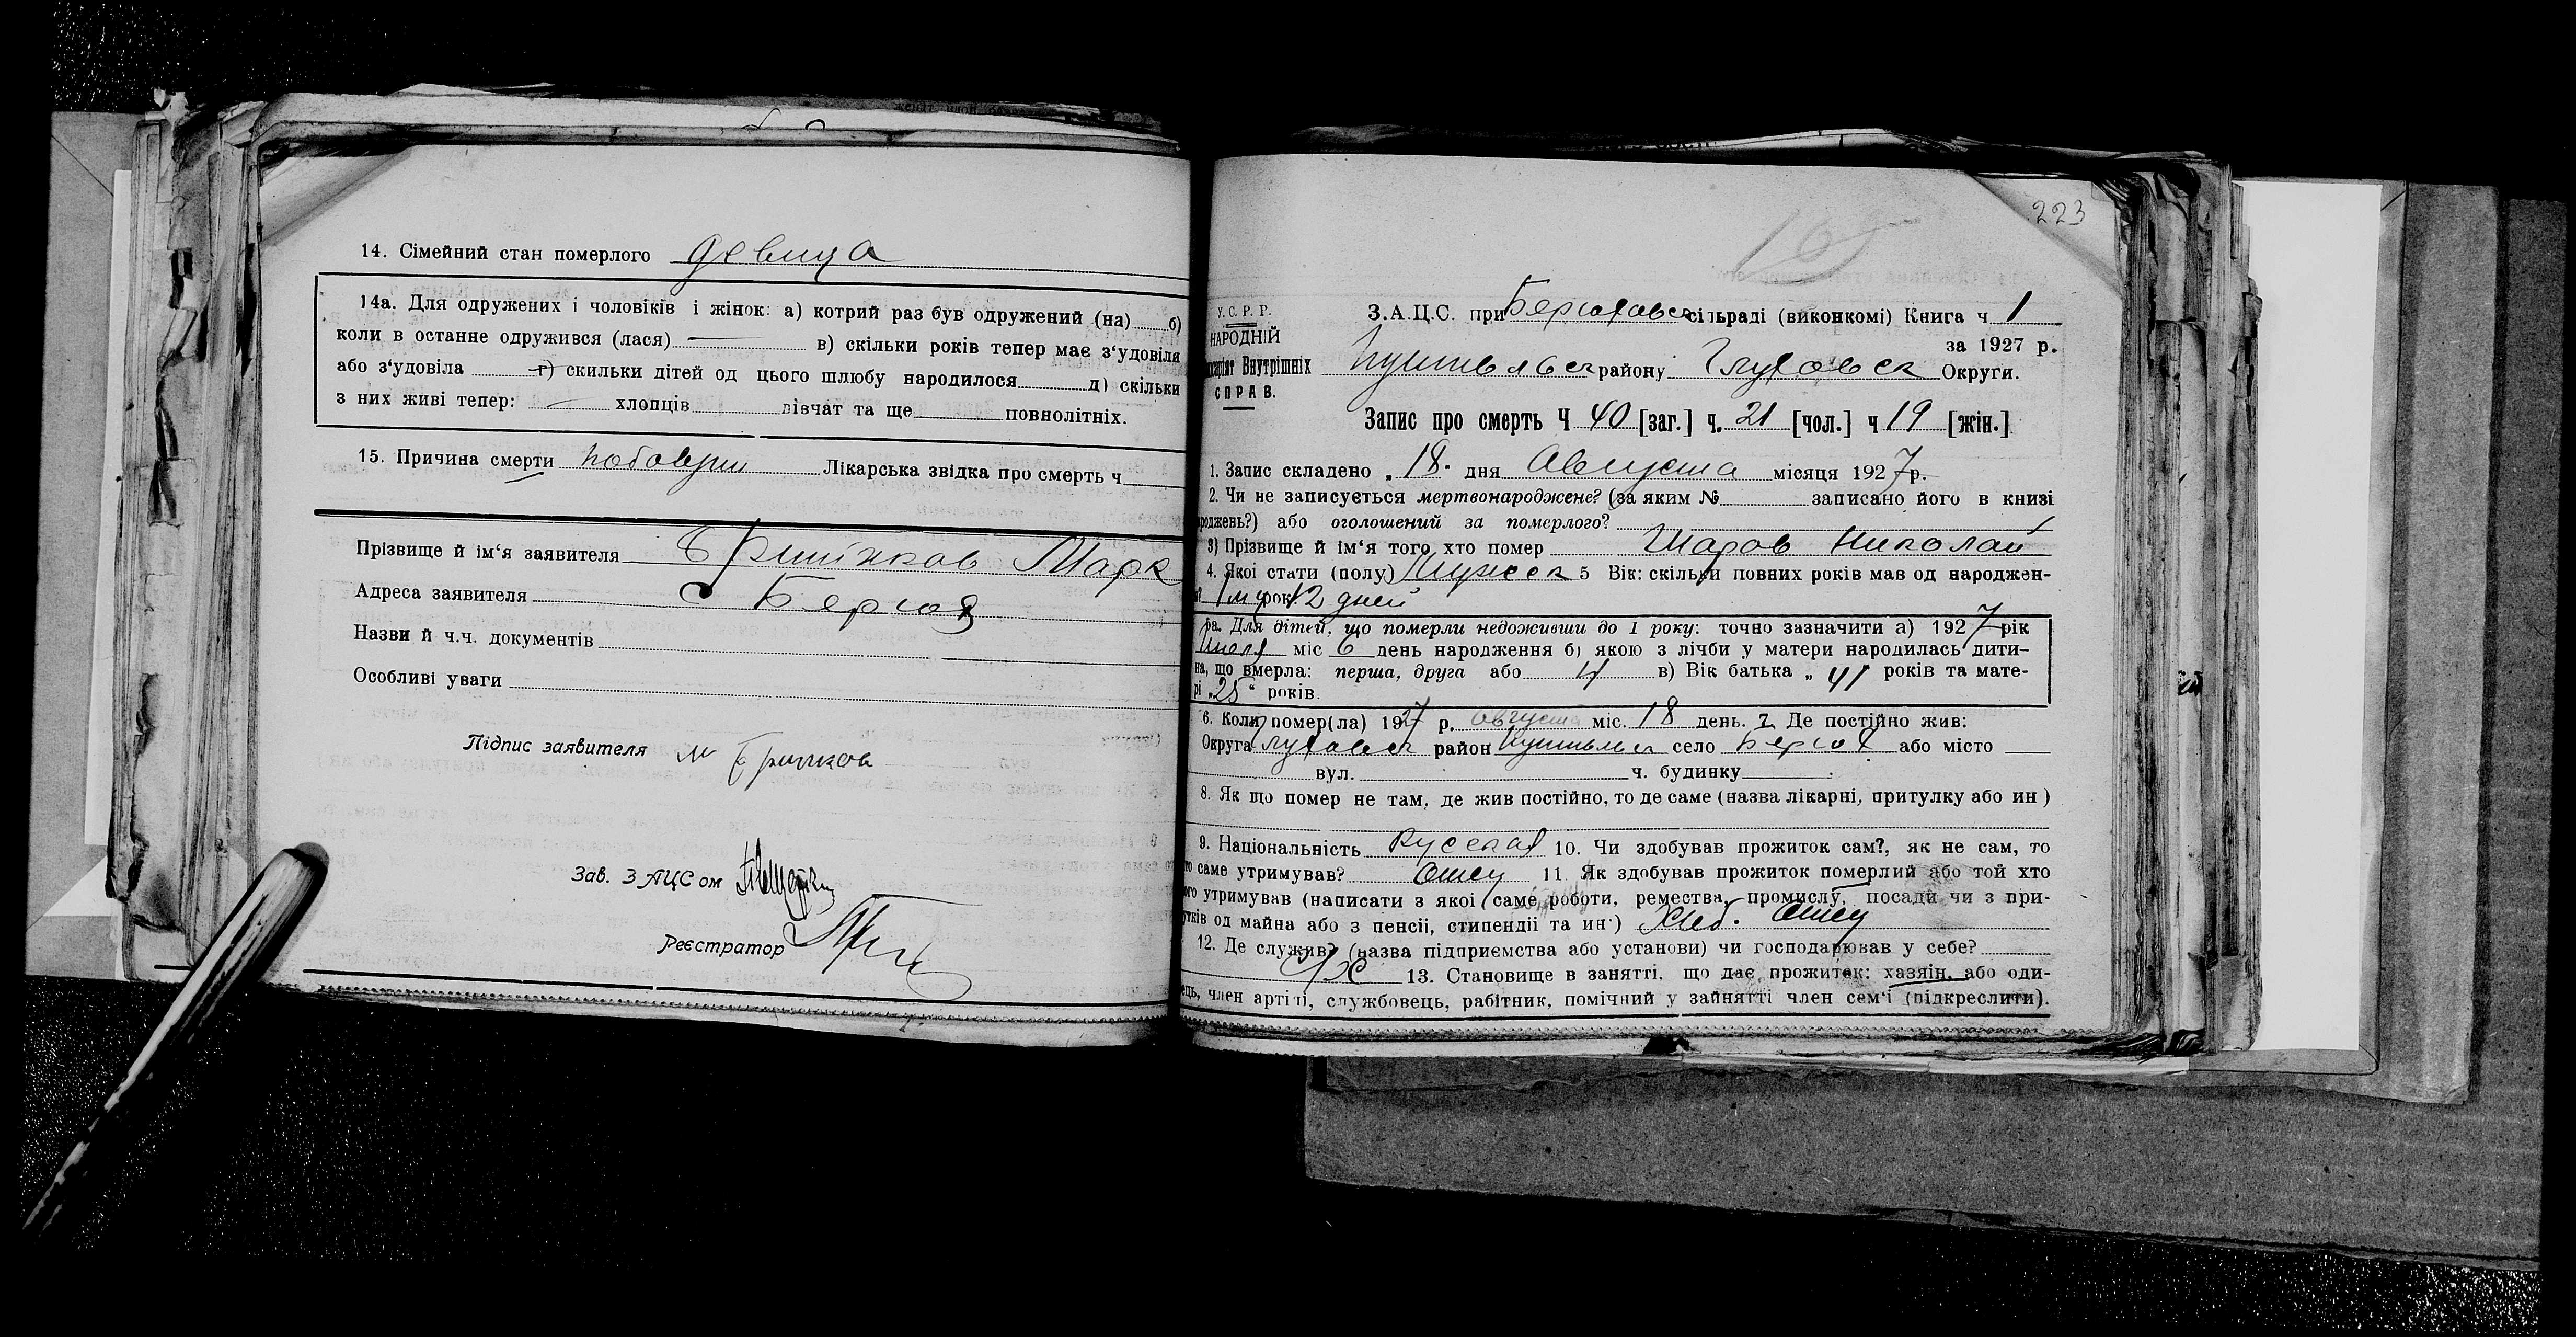 14. Сімейний стан померлого девица
14а. Для одружених і чоловіків і жінок: а) котрий раз був одружений (на) б)
коли в останне одружився (лася) — в) скільки років тепер має з‘удовіля
або з‘удовіла г) скильки дітей од цього шлюбу народилося д) скільки
з них живі тепер: — хлопців дівчат та ще повнолітніх.
15. Причина смерти Лікарська звідка про смерть ч
Прізвище й ім‘я заявителя Марк
Адреса заявителя с Берюх
Назви й ч.ч. документів
Особливі уваги
Підпис заявителя М
Зав. ЗАЦСом
Реєстратор
223
У.С.Р.Р. З.А.Ц.С. при Берюховск сільраді (виконкомі) Книга ч 1
НАРОДНІЙ за 1927 р.
Внутрішніх Путивльск району Глуховск Округи.
СПРАВ.
Запис про смерть Ч 40 [заг.] ч. 21 [чол.] ч 19 [жін.]
1. Запис складено „ 18. дня Августа місяця 1927 р.
2. Чи не записується мертвонароджене? (за яким № записано його в книзі
роджень?) або оголошений за померлого?
3) Прізвище й ім‘я того хто помер Шаров Николай
4. Якої стати (полу) Мужск 5 Вік: скільки повних років мав од народжен-
1 м рок. 12 дней
5а. Для дітей, що померли недоживши до 1 року: точно зазначити а) 1927 рік
Июля міс 6 день народження б) якою з лічби у матери народилась дити-
на, що вмерла: перша, друга або 4 в) Вік батька „ 41 років та мате-
рі „25“ років.
6. Коли помер(ла) 1927 р. августа міс. 18 день. 7. Де постійно жив:
Округа Глуховск район Путивльск село Берюх або місто
вул. ч. будинку
8. Як що помер не там, де жив постійно, то де саме (назва лікарні, притулку або ин )
9. Національність Русская 10. Чи здобував прожиток сам?, як не сам, то
то саме утримував? Отец 11. Як здобував прожиток померлий або той хто
ого утримував (написати з якої саме роботи, ремества, промислу, посади чи з при-
утків од майна або з пенсії, стипендії та ин·) Хлеб. Отец
12. Де служив? (назва підприємства або установи) чи господарював у себе?
13. Становище в занятті. що дає прожиток: хазяїн, або оди-
ець, член артілі, службовець, рабітник, помічний у зайнятті член сем‘ї (підкреслити).